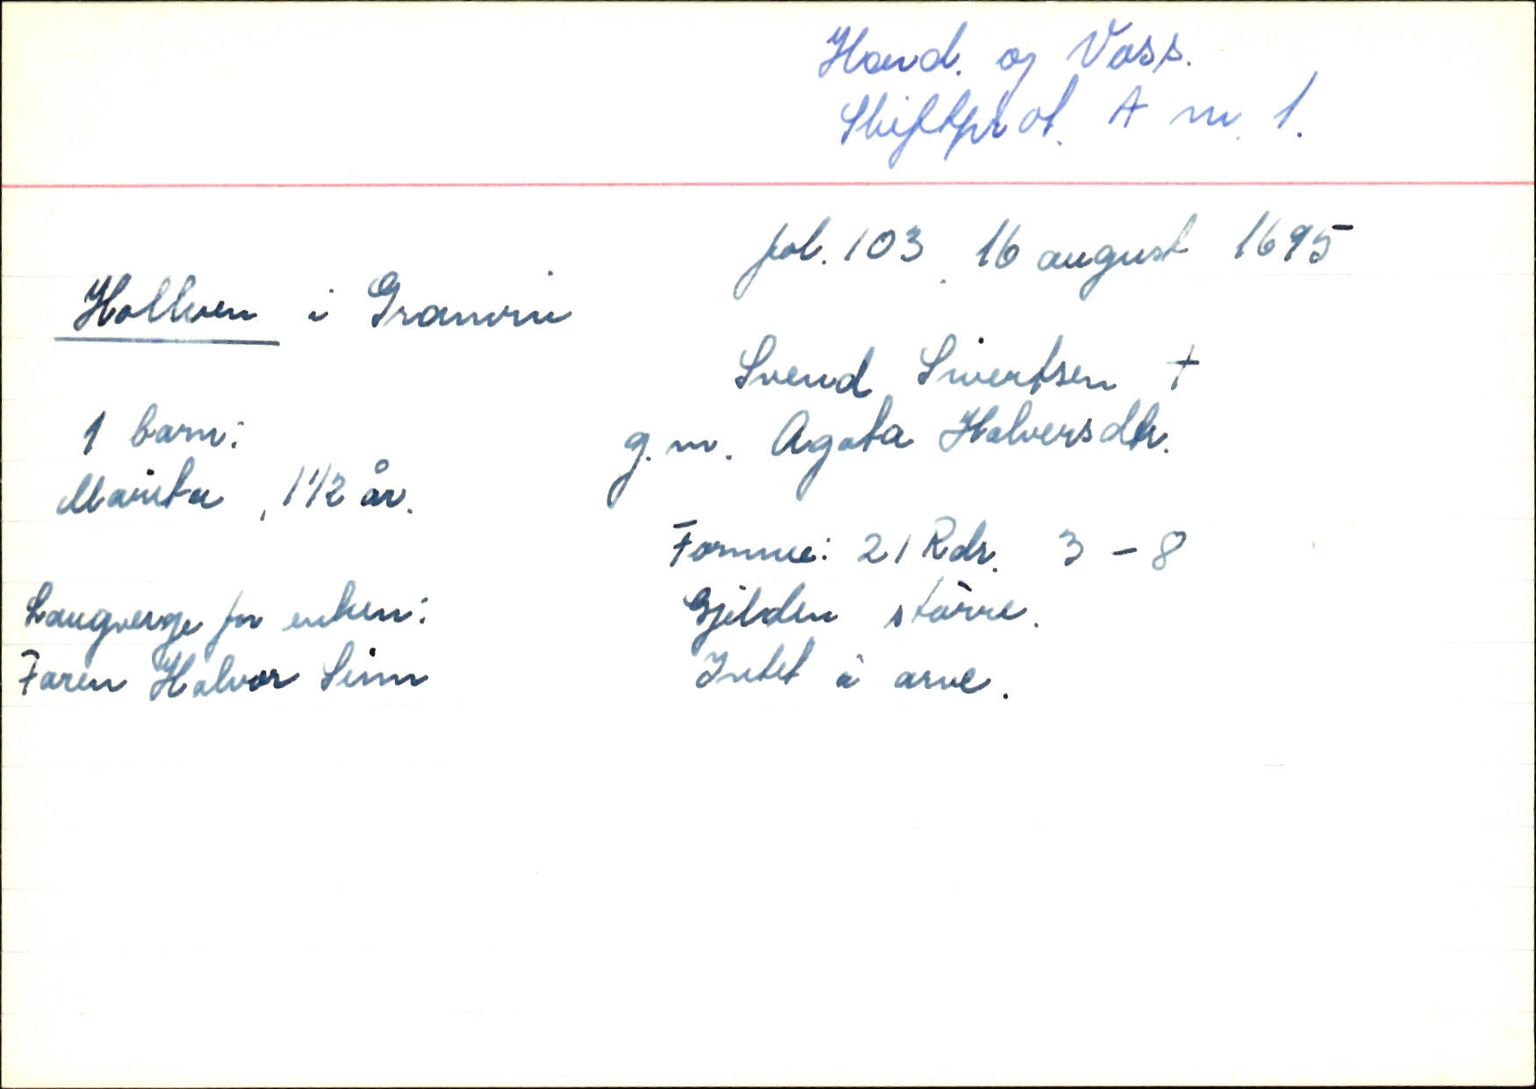 Hard. og Voss.
Skiftprot. A nr. 1.
fol. 103. 16 august 1695
Hollven i Granvin
Svend Sivertsen †
g.m. Agata Halversdtr.
1 barn:
Marita, 1 1/2 år.
Formue: 21 Rdr. 3 - 8
Gjelden større.
Intet å arve.
Laugverge for enken:
Faren Halvor Seim